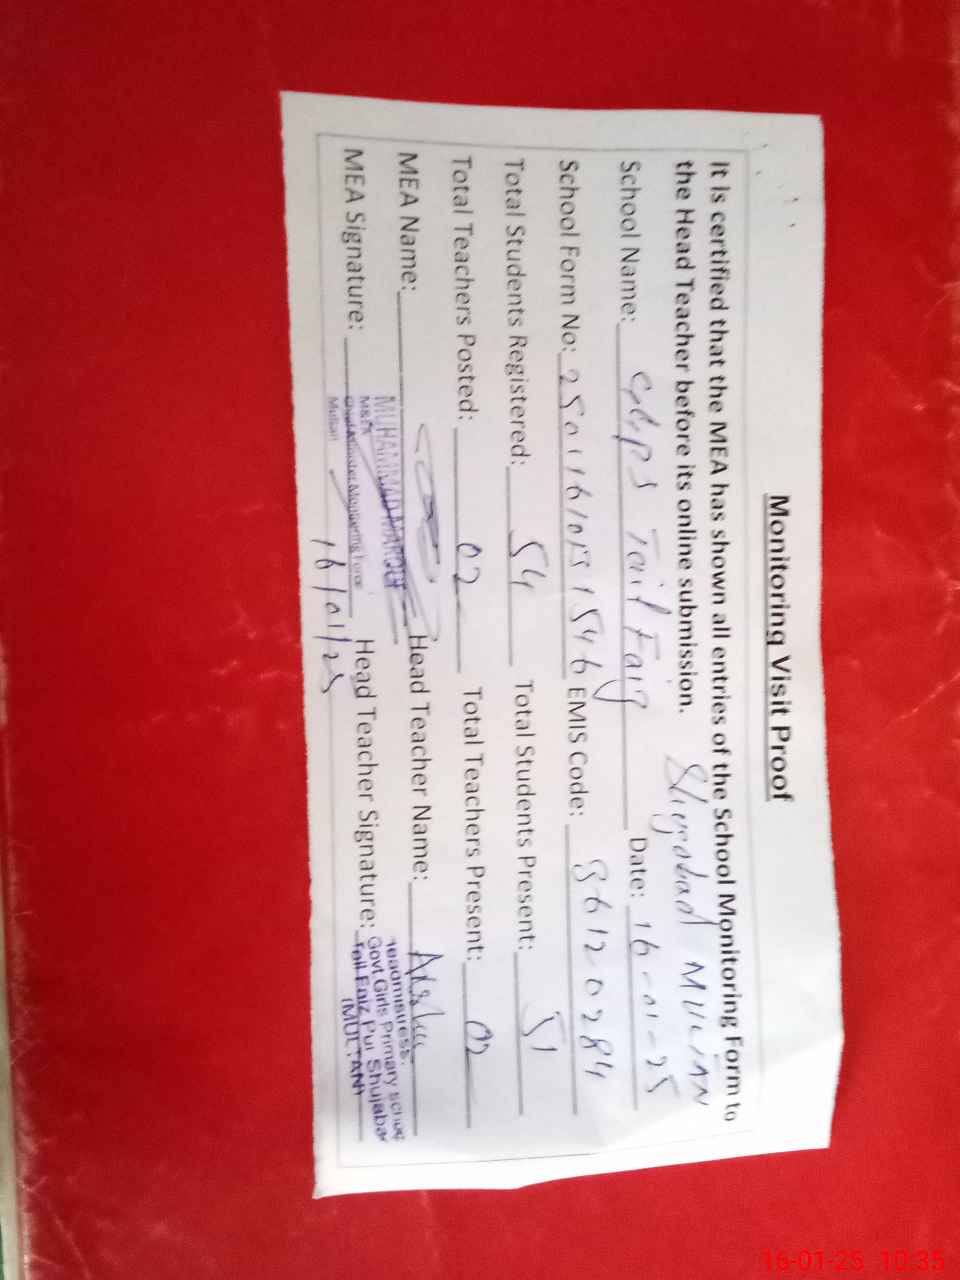 Monitoring Visit Proof
It is certified that the MEA has shown all entries of the School Monitoring Form to
the Head Teacher before its online submission. Shujabad MULTAN
School Name: GGPS Tail Faiz Date: 16-01-25
School Form No: EMIS Code: 36120284
Total Students Registered: 54 Total Students Present: 51
Total Teachers Posted: 02 Total Teachers Present: 02
MEA Name: Head Teacher Name:
MUHAMMAD MAROOF
M&EA
MEA Signature: Head Teacher Signature:
Chief Minister Monitoring Force
Multan
16/01/25
Headmistress.
Govt Girls Primary School
Tail Faiz Pur Shujabad
(MULTAN)
16-01-25 10:35